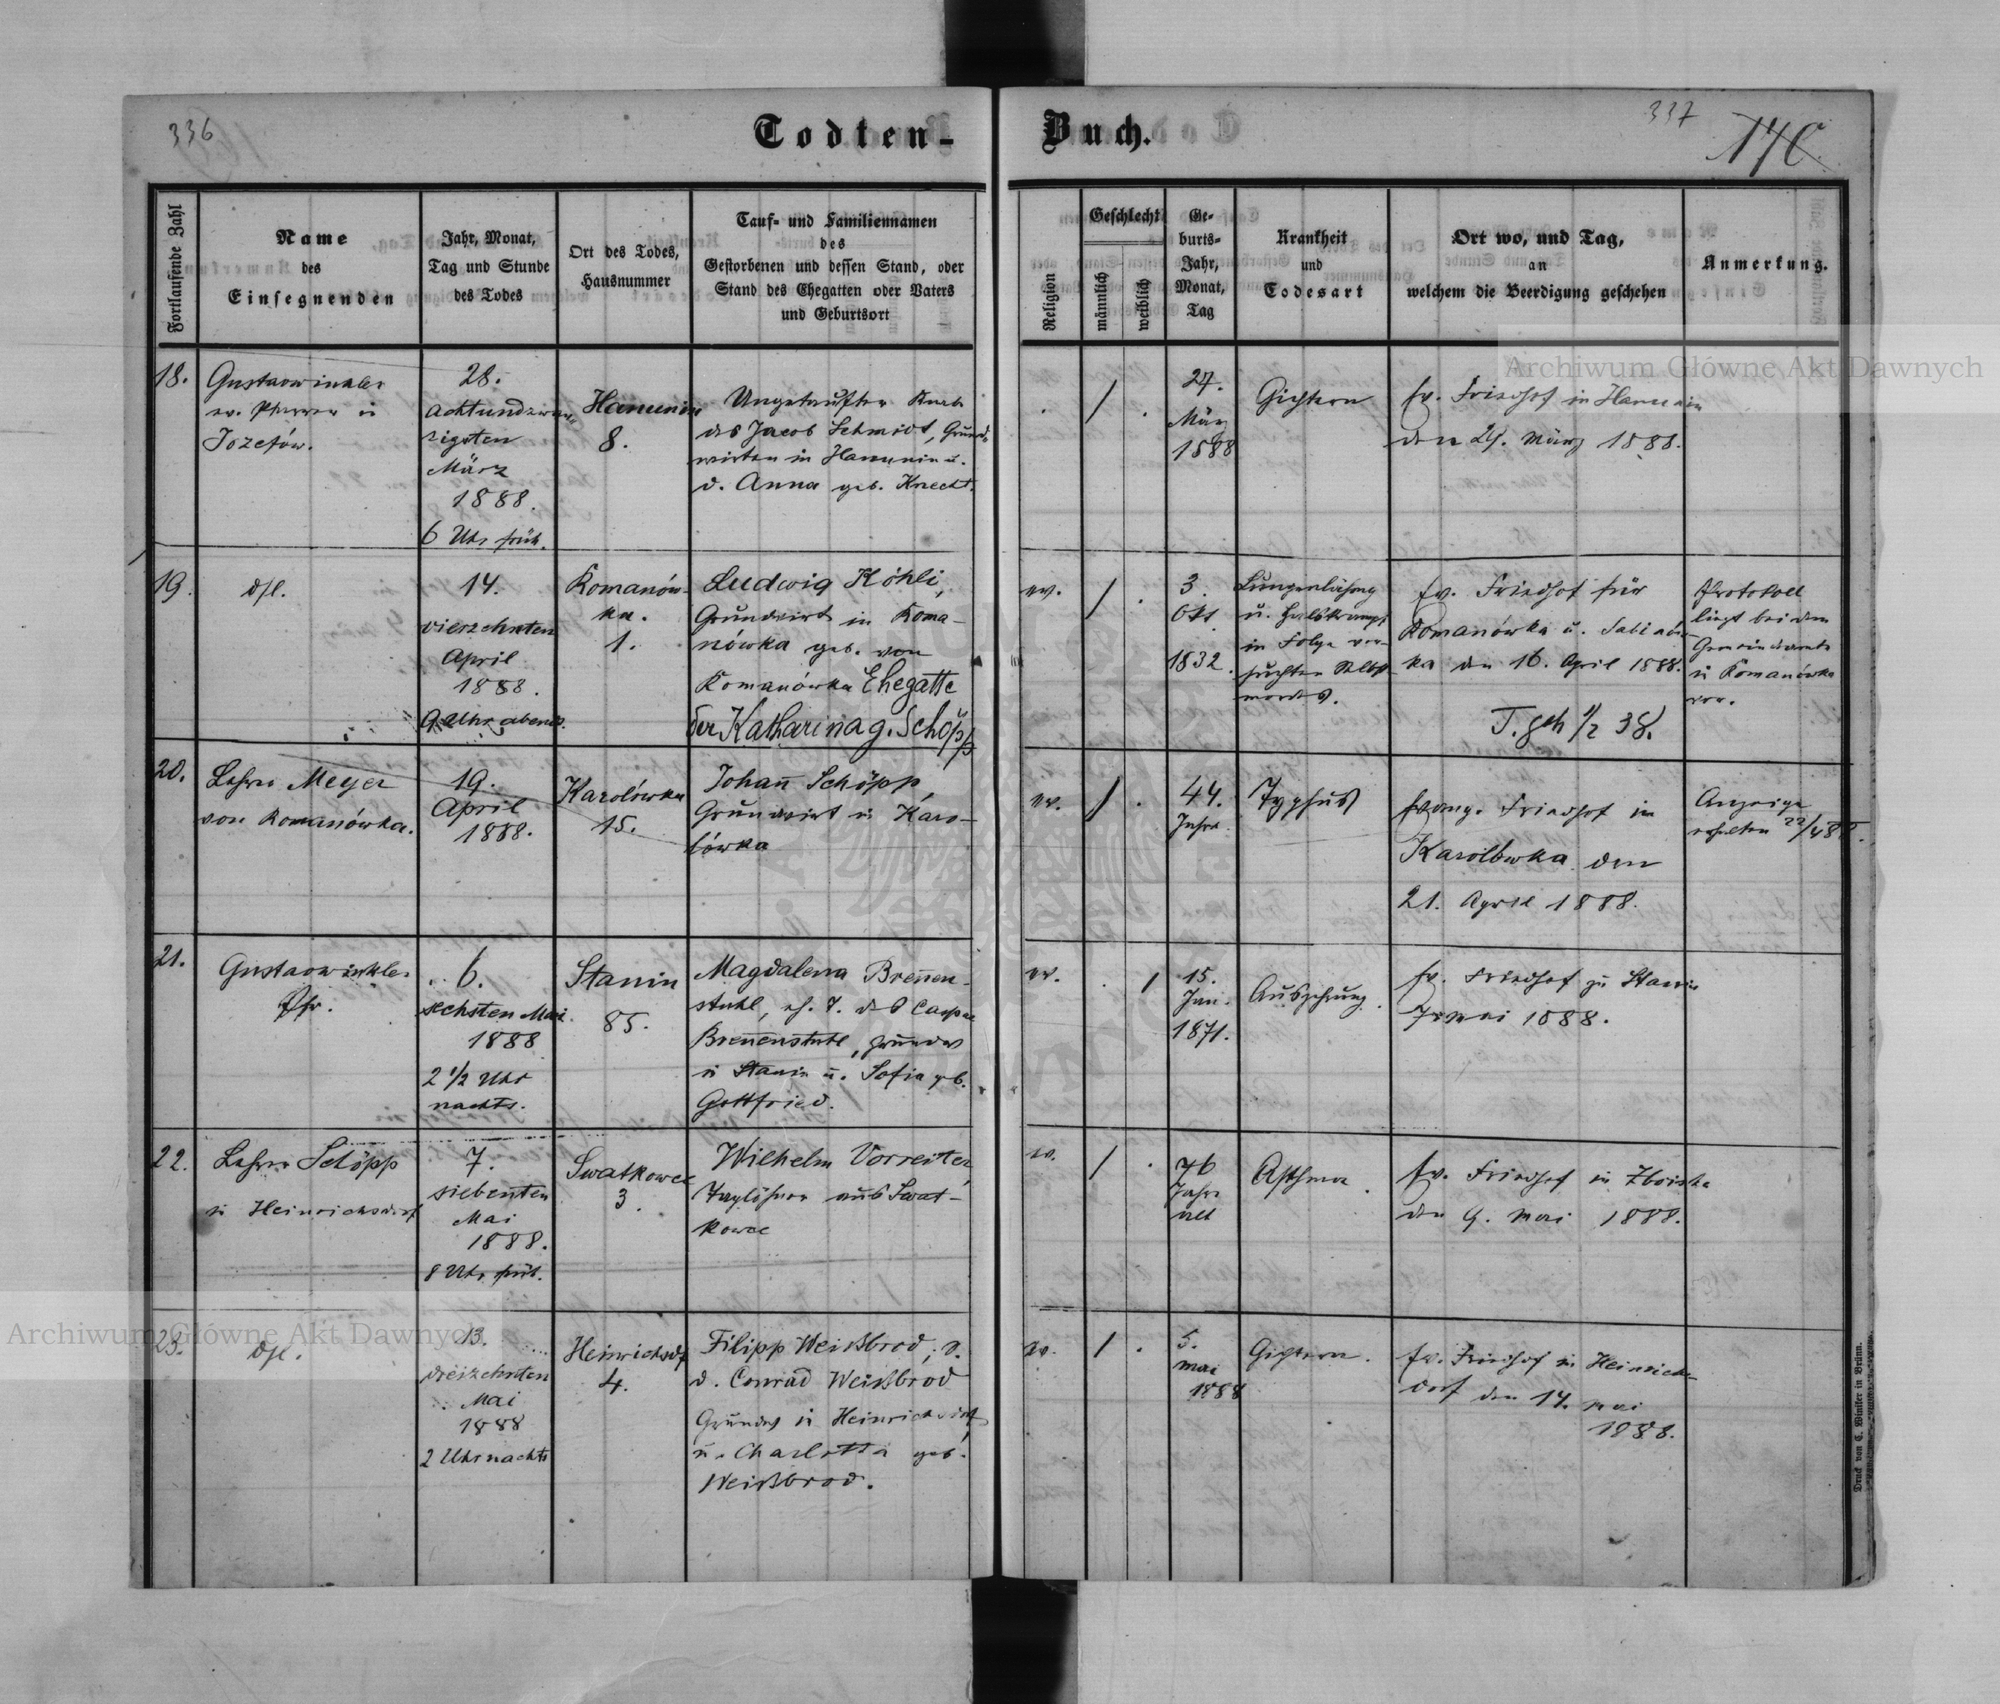 336
Todten-
Fortlaufende Zahl
Name
des
Einsegnenden
Jahr, Monat,
Tag und Stunde
des Todes
Ort des Todes,
Hausnummer
Tauf- und Familiennamen
des
Gestorbenen und dessen Stand, oder
Stand des Ehegatten oder Vaters
und Geburtsort
18.
Gustav Winkler
ev. Pfarrer in
Józefów.
28.
achtundzwan
zigsten
März
1888.
6 Uhr früh.
Hanunin
8.
Ungetaufter Knabe
des Jacob Schmidt, Grund
wirten in Hanunin u.
d. Anna geb. Knecht.
19.
dsl.
14.
vierzehnten
April
1888.
9 Uhr abends.
Romanów-
ka.
1.
Ludwig Köhli,
Grundwirt in Roma-
nówka geb. von
Romanówka Ehegatte
der Katharina g. Schöpp
20.
Lehrer Meyer
von Romanówka.
19.
April
1888.
Karolówka
15.
Johann Schöpp,
Grundwirt in Karo-
lówka
21.
Gustav Winkler
Pfr.
6.
sechsten Mai
1888
2 1/2 Uhr
nachts.
Stanin
85.
Magdalena Breñen-
stuhl, eh. T. des Caspar
Breñenstuhl, Grundw
in Stanin u. Sofia geb.
Gottfried.
22.
Lehrer Schöpp
in Heinrichsdorf
7.
siebenten
Mai
1888.
8 Uhr früh.
Swatkowce
3.
Wilhelm Vorreiter,
Taglöhner aus Swat-
kowce
23.
dsl.
13.
dreizehnten
Mai
1888
2 Uhr nachts
Heinrichsdf
4.
Filipp Weißbrod, S.
d. Conrad Weißbrod
Grundw in Heinrichsdorf
u. Charlotta geb.
Weißbrod.
337
170
Buch.
Religion
Geschlecht
männlich
weiblich
Ge-
burts-
Jahr,
Monat,
Tag
Krankheit
und
Todesart
Ort wo, und Tag,
an
welchem die Beerdigung geschehen
Anmerkung.
/
27.
März
1888
Gichtern
Ev. Friedhof in Hanunin
den 29. März 1888.
ev.
/
3.
Okt
1832.
Lungenlähmg
u. Halskrampf
in Folge ver-
suchten Selbst
mordes.
Ev. Friedhof für
Romanówka u. Sabinów-
ka den 16. April 1888.
T. geh 1/2 38.
Protokoll
liegt bei dem
Gemeindeamte
in Romanówka
vor.
ev.
/
44.
Jahre
Typhus
Evang. Friedhof in
Karolówka den
21. April 1888.
Anzeige
erhalten 22/4 88.
ev.
/
15.
Jan.
1871.
Auszehrung.
Ev. Friedhof zu Stanin
7. Mai 1888.
ev.
/
76
Jahre
alt
Asthma.
Ev. Friedhof in Zboiska
den 9. Mai 1888.
ev.
/
5.
Mai
1888
Gichtern.
Ev. Friedhof in Heinrichs-
dorf den 14. Mai
1888.
Druck von C. Winiker in Brünn.
Archiwum Główne Akt Dawnych
Archiwum Główne Akt Dawnych